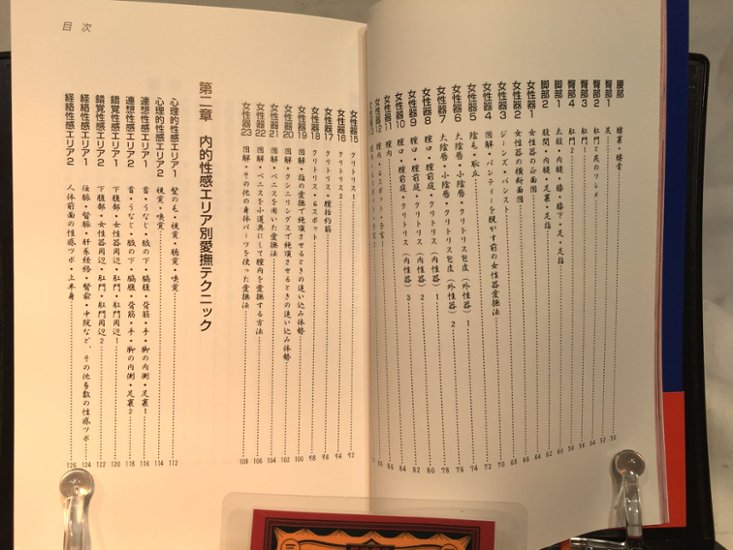 腰部 腰裏・腰骨 50
臀部1 52
臀部2 肛門と尻のワレメ 54
臀部3 肛門1 56
臀部4 肛門2 58
脚部1 太股・内腿・膝・膝下・足・足指 60
脚部2 股間・内腿・足裏・足指 62
女性器1 女性器の正面図 64
女性器2 女性器の横断面図 66
女性器3 ジーンズ・パンスト 68
女性器4 図解・パンティーを脱がす前の女性器愛撫法 70
女性器5 陰毛・恥丘 72
女性器6 大陰唇・小陰唇・クリトリス包皮(外性器)1 74
女性器7 大陰唇・小陰唇・クリトリス包皮(外性器)2 76
女性器8 膣口・膣前庭・クリトリス(内性器)1 78
女性器9 膣口・膣前庭・クリトリス(内性器)2 80
女性器10 膣口・膣前庭・クリトリス(内性器)3
女性器11 膣内
女性器12 膣内・Gスポット・子宮
女性器15 クリトリス1 92
女性器16 クリトリス2 94
女性器17 クリトリス・膣括約筋 96
女性器18 クリトリス・Gスポット 98
女性器19 図解・指の愛撫で絶頂させるときの追い込み体勢 100
女性器20 図解・クンニリングスで絶頂させるときの追い込み体勢 102
女性器21 図解・ペニスを用いた愛撫法 104
女性器22 図解・ペニスを小道具にして膣内を愛撫する方法 106
女性器23 図解・その他の身体パーツを使った愛撫法 108
第二章 内的性感エリア別愛撫テクニック
心理的性感エリア1 髪の毛・視覚・聴覚・嗅覚 112
心理的性感エリア2 視覚・嗅覚 114
連想性感エリア1 首・うなじ・腋の下・脇腹・背筋・手・脚の内側・足裏1 116
連想性感エリア2 首・うなじ・腋の下・脇腹・背筋・手・脚の内側・足裏2 118
錯覚性感エリア1 下腹部・女性器周辺・肛門・肛門周辺1 120
錯覚性感エリア2 下腹部・女性器周辺・肛門・肛門周辺2 122
経絡性感エリア1 任脈・腎脈・肝系経絡・腎兪・中脘など、その他多数の性感ツボ 124
経絡性感エリア2 人体前面の性感ツボ・上半身 126
目次